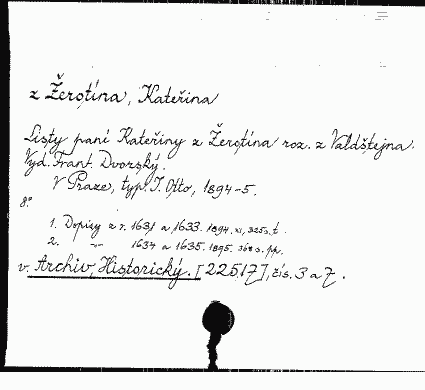 z Žerotína, Kateřina
Listy paní Kateřiny z Žerotína roz. z Valdštejna.
Vyd. Frant. Dvorský.
V Praze, typ. J. Otto, 1894-5.
8°
1. Dopisy z r. 1631 a 1633. 1894. XI, 325 s. t.
2. -„- 1634 a 1635. 1895. 368 s.
v. Archiv Historický. [22517], čís. 3 a 7.